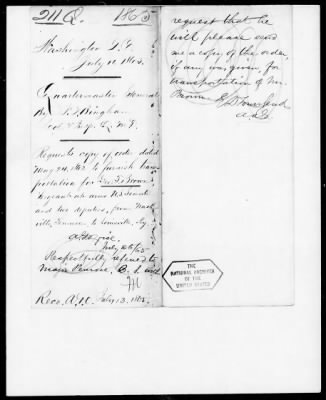 211 Q. 1865
Washington D.C.
July 11 1865.
Quartermaster General
By J. D. Bingham
Col &
Requests copy of order dated
May 24, 1865 to furnish trans
portation for Geo. T. Brown
Sergeant at arms U.S. Senate
and two deputies, from Nash
ville, Tennessee to Louisville, Ky
July 26/65
Respectfully referred to
Major Penrose, C. S. with
Recd. A.G.O. July 13. 1865.
request that he
will please send
me a copy of the order,
if any was given for
transportation of Mr.
Brown E D Townsend
A.A.G.
THE
NATIONAL ARCHIVES
OF THE
UNITED STATES